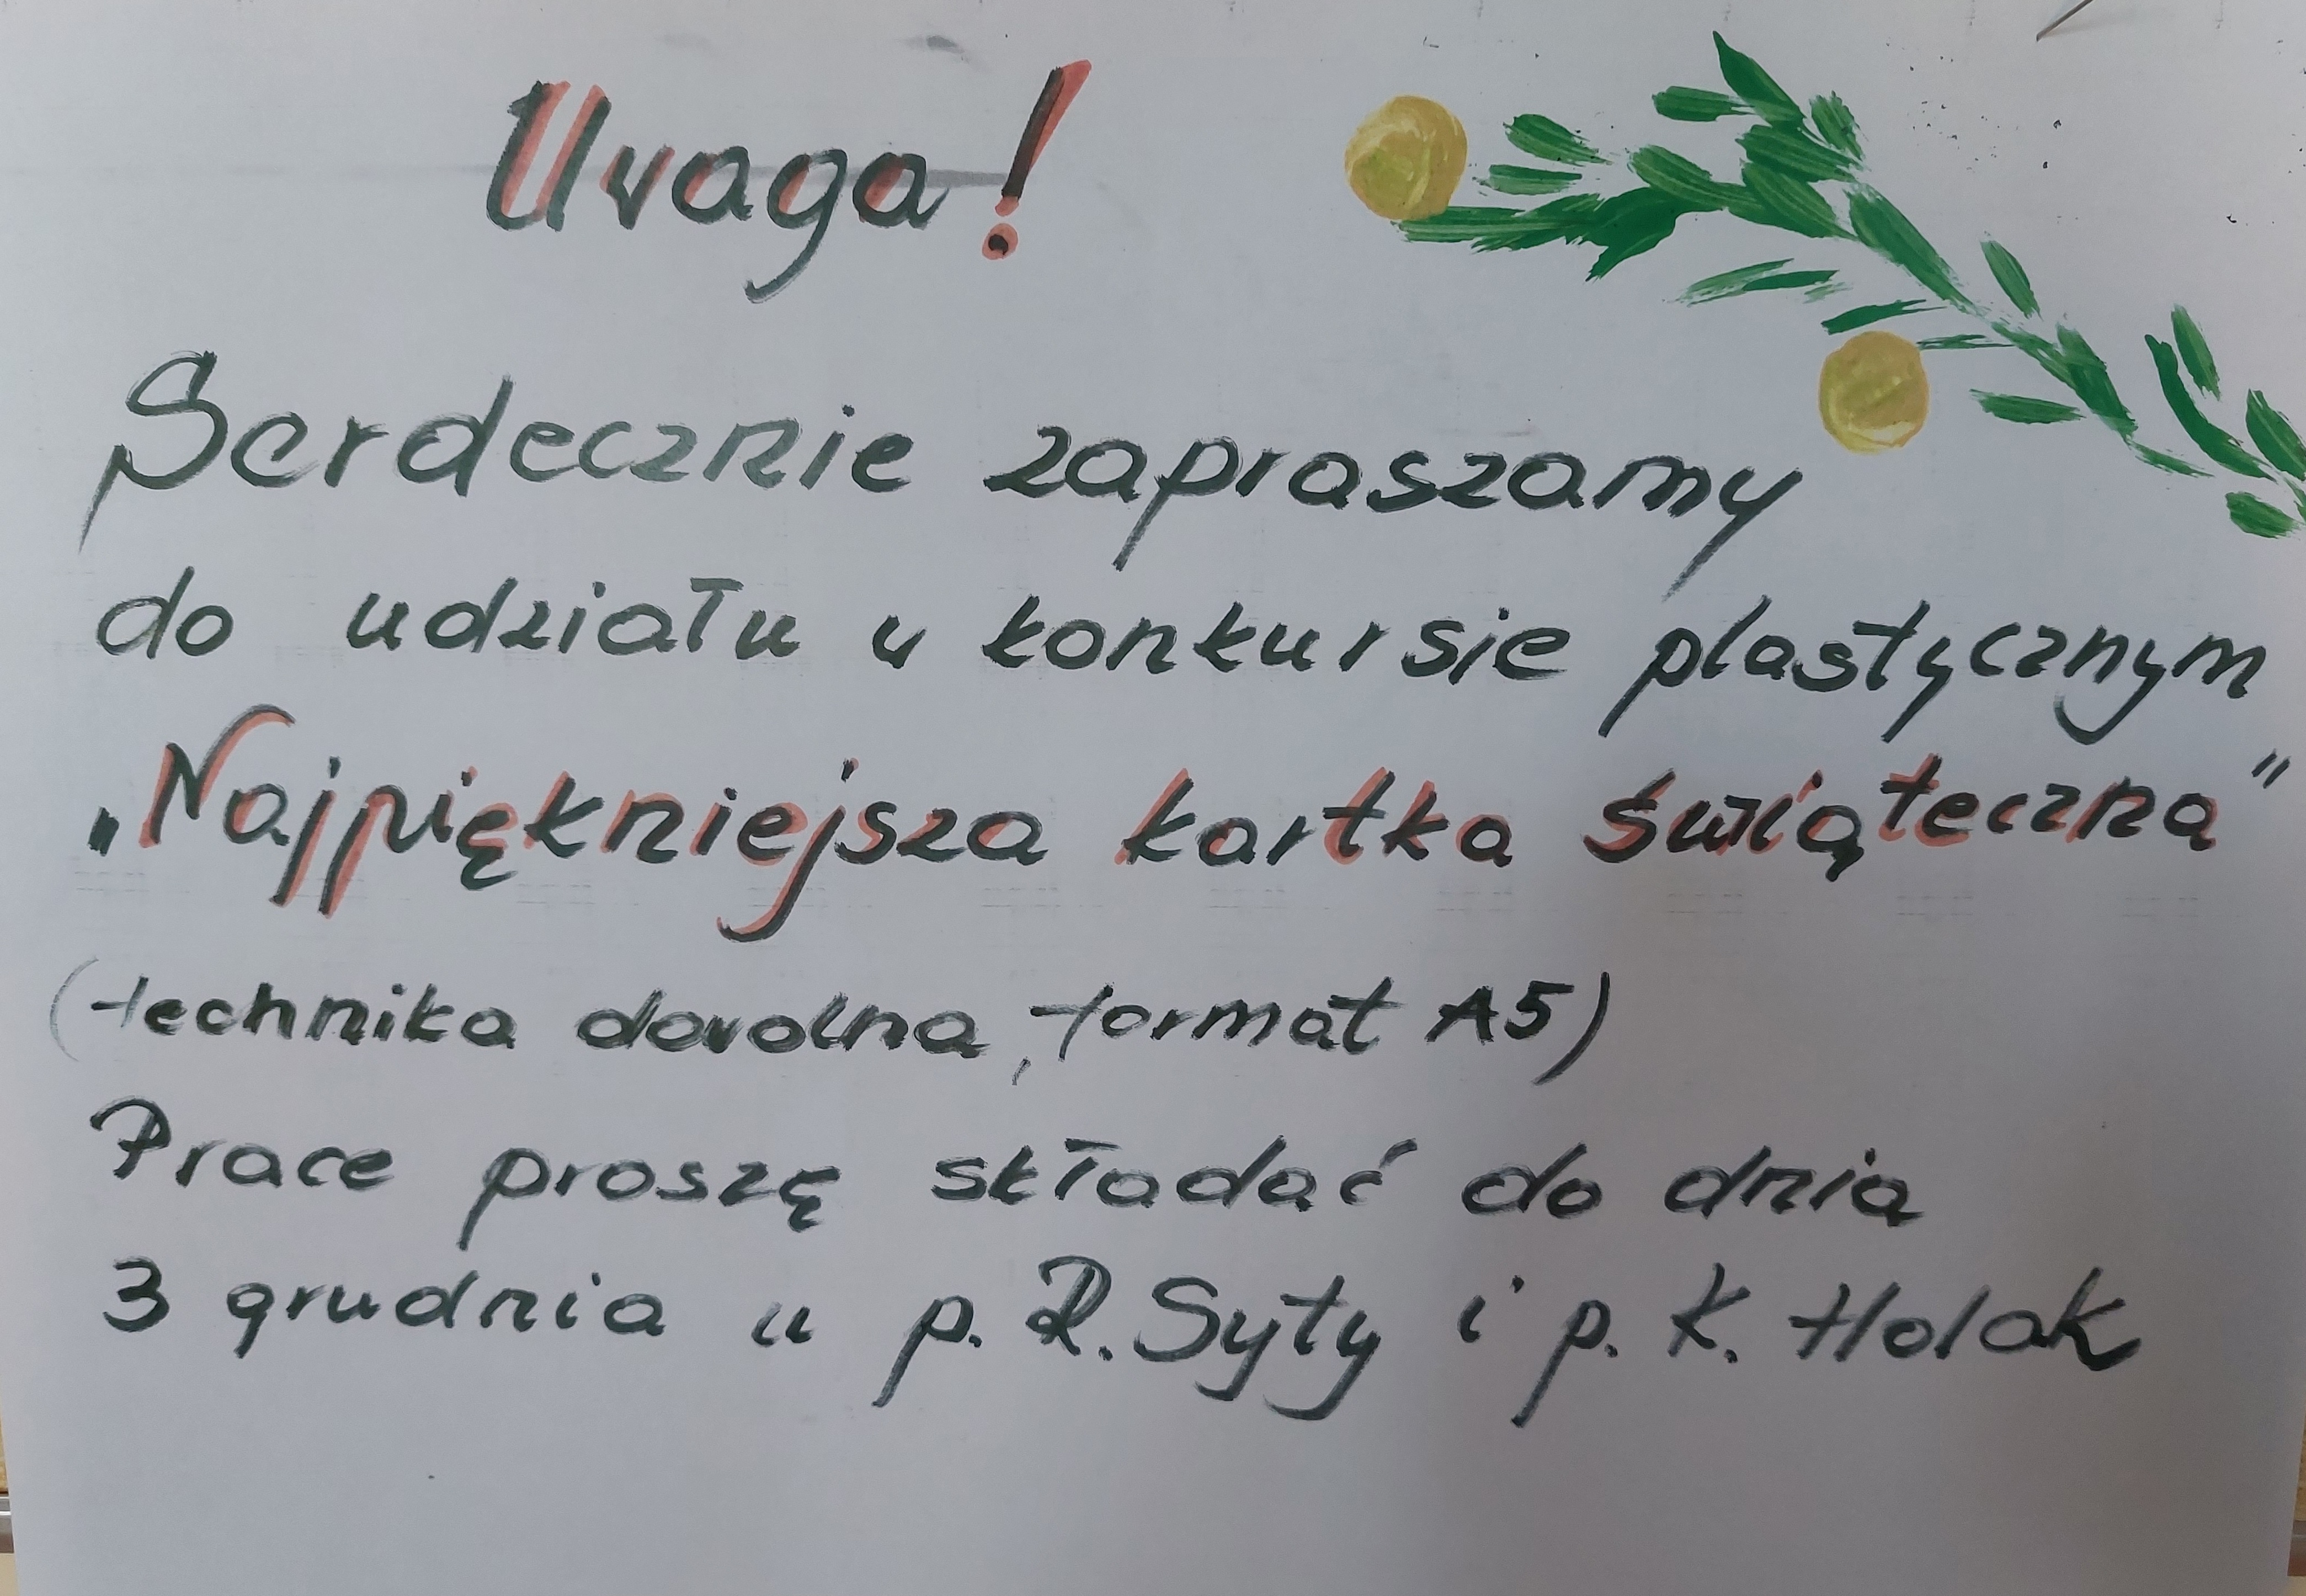 Uwaga!
Serdecznie zapraszamy
do udziału w konkursie plastycznym
„Najpiękniejsza kartka świąteczna"
(technika dowolna, format A5)
Prace proszę składać do dnia
3 grudnia u p. R. Syty i p. K. Holak